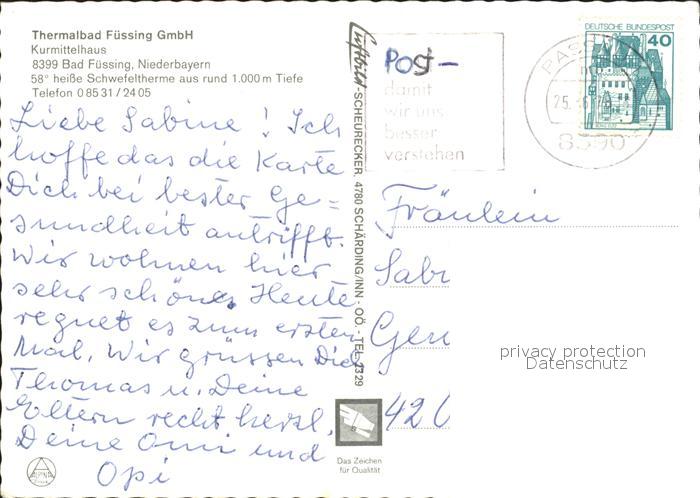 Thermalbad Füssing GmbH
Kurmittelhaus
8399 Bad Füssing, Niederbayern
58° heiße Schwefeltherme aus rund 1.000 m Tiefe
Telefon 0 85 31 / 24 05
Liebe Sabine! Ich
hoffe das die Karte
Dich bei bester Ge=
sundheit antrifft.
Wir wohnen hier
sehr schön. Heute
regnet es zum ersten
Mal. Wir grüssen Dich
Thomas u. Deine
Eltern recht herzl.
Deine Omi und
Opi
ALPINA
Luftbild-SCHEURECKER, 4780 SCHÄRDING/INN - OÖ. - TEL. 2329
Das Zeichen
für Qualität
Post-
damit
wir uns
besser
verstehen
PASSAU
25.
8390
DEUTSCHE BUNDESPOST
40
Fräulein
Sabi
Gen
42
privacy protection
Datenschutz